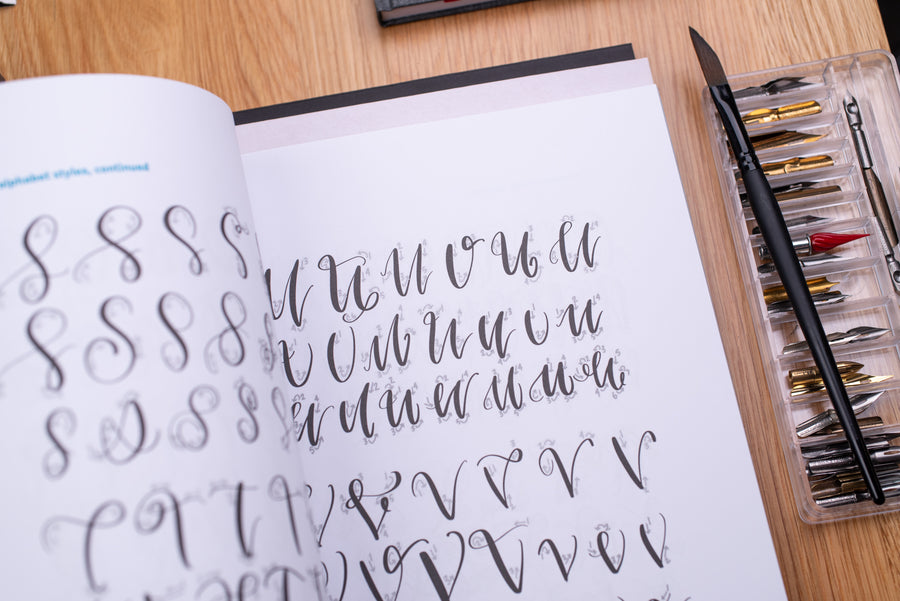 alphabet styles, continued
S S S S
S S S S
S S S S
T T T T
U U U U U U
U U U U U U U
U U U U U U U
V V V V V
V V V V V V